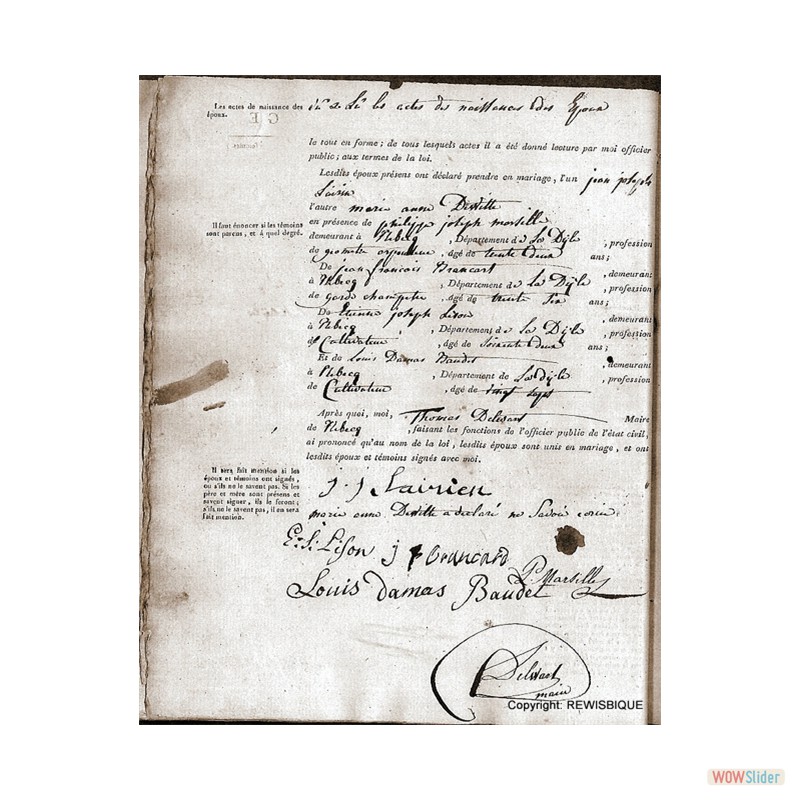 Les actes de naissance des
époux.
les actes des naissances des Epoux
le tout en forme; de tous lesquels actes il a été donné lecture par moi officier
public; aux termes de la loi.
Lesdits époux présens ont déclaré prendre en mariage, l'un jean joseph
Lairin
l'autre marie anne Dewitte
Il faut énoncer si les témoins
sont parens, et à quel degré.
en présence de philippe joseph marsille
demeurant à Rebecq, Département de La Dyle, profession
de geometre arpenteur, âgé de trente deux ans;
De jean françois Brancart, demeurant
à Rebecq, Département de La Dyle, profession
de garde champetre, âgé de trente six ans;
De Etienne joseph Lison, demeurant
à Rebecq, Département de La Dyle, profession
de Cultivateur, âgé de soixante deux ans;
Et de Louis Damas Baudet, demeurant
à Rebecq, Département de La dyle, profession
de Cultivateur, âgé de vingt sept
Après quoi, moi, Thomas Delwart Maire
de Rebecq, faisant les fonctions de l'officier public de l'état civil,
ai prononcé qu'au nom de la loi, lesdits époux sont unis en mariage, et ont
lesdits époux et témoins signés avec moi.
Il sera fait mention si les
époux et témoins ont signés,
ou s'ils ne le savent pas. Si les
père et mère sont présens et
savent signer, ils le feront;
s'ils ne le savent pas, il en sera
fait mention.
j. j Lairien
marie anne Dewitte a déclaré ne Savoir ecrire
E. J. Lison j f Brancard
P. Marsille
Louis Damas Baudet
Delwart
maire
Copyright: REWISBIQUE
WOWSlider